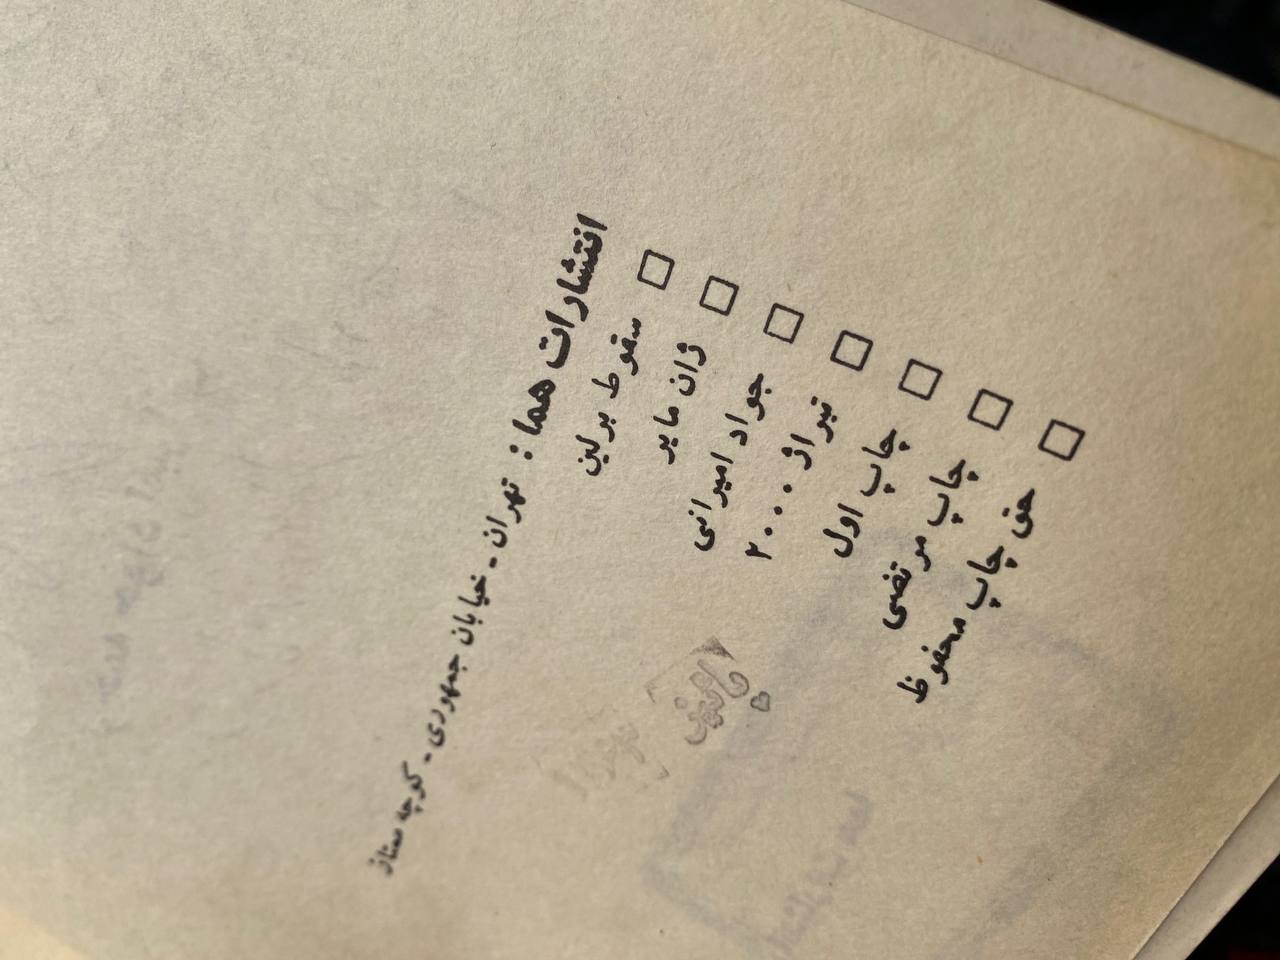 انتشارات هما: تهران - خیابان جمهوری - کوچه ممتاز
□ سقوط برلین
□ ژان مابر
□ جواد امیرانی
□ تیراژ ۲۰۰۰
□ چاپ اول
□ چاپ مرتضی
□ حق چاپ محفوظ